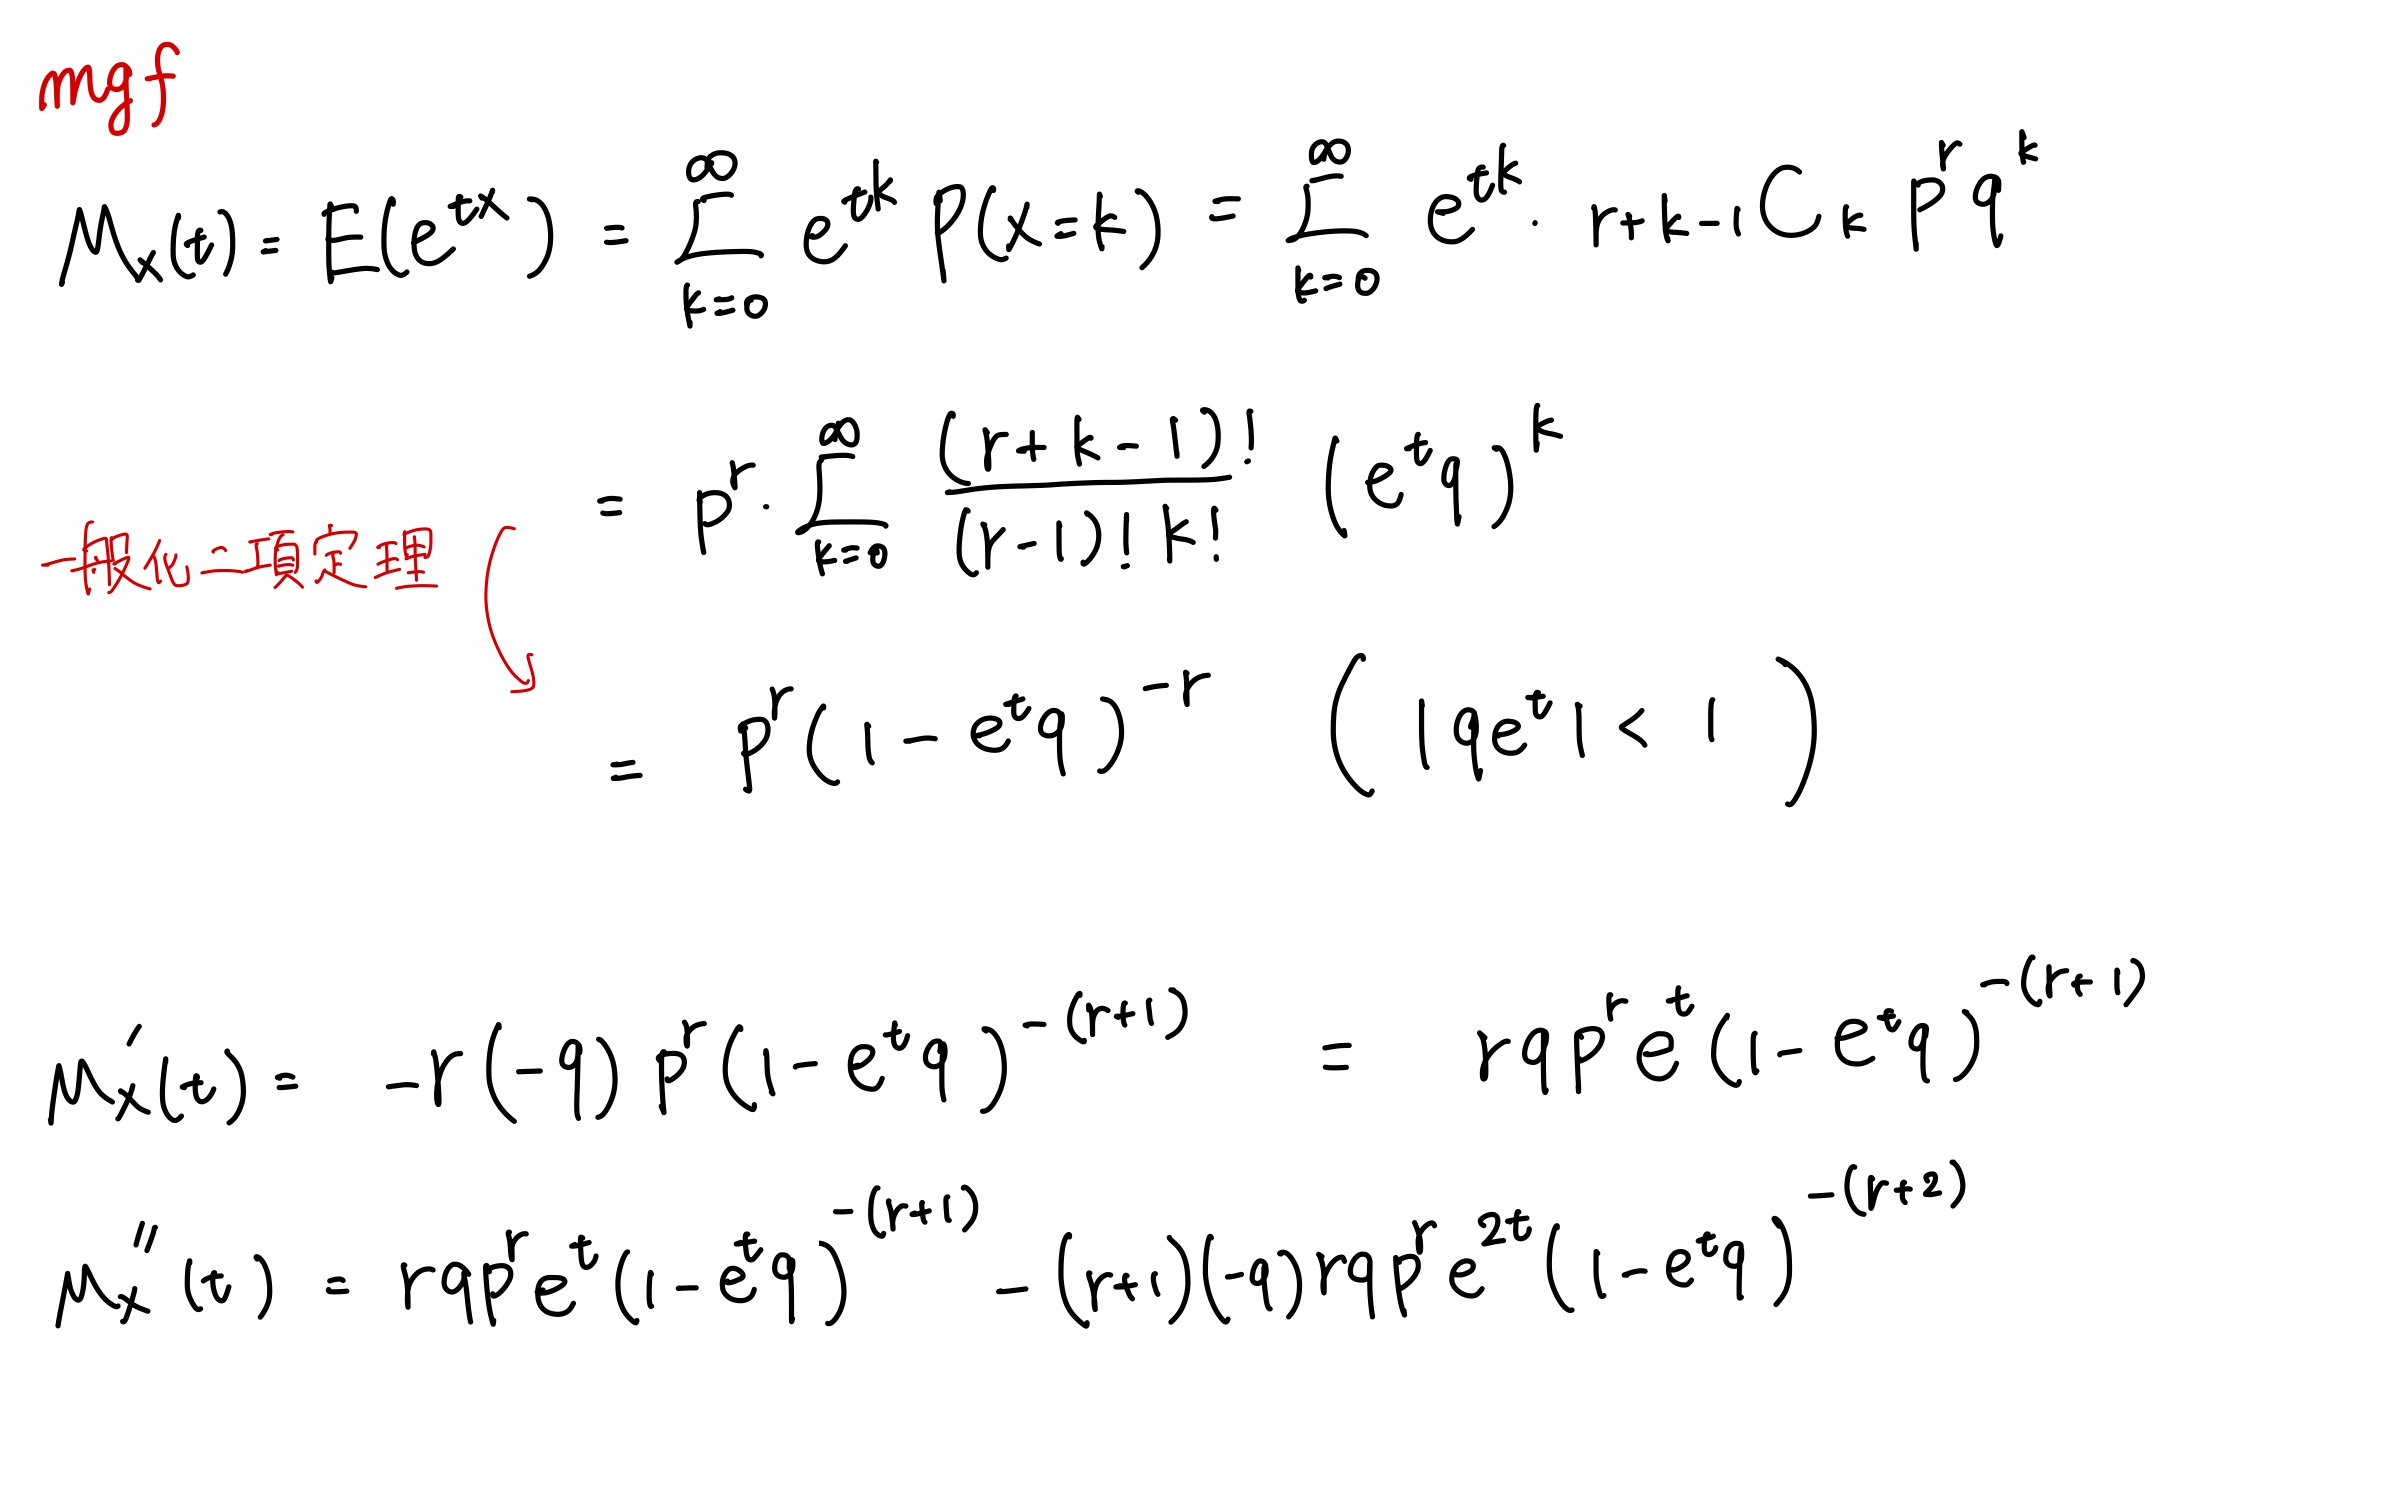 mgf
M_X(t) = E(e^{tX}) = \sum_{k=0}^{∞} e^{tk} P(X=k) = \sum_{k=0}^{∞} e^{tk} · _{r+k-1}C_k p^r q^k
= p^r · \sum_{k=0}^{∞} \frac{(r+k-1)!}{(r-1)! k!} (e^t q)^k
一般化二項定理
= p^r (1 - e^t q)^{-r} ( |qe^t| < 1 )
M_X'(t) = -r(-q) p^r (1 - e^t q)^{-(r+1)} = rqp^r e^t (1 - e^t q)^{-(r+1)}
M_X''(t) = rqp^r e^t (1 - e^t q)^{-(r+1)} - (r+1)(-q) rqp^r e^{2t} (1 - e^t q)^{-(r+2)}